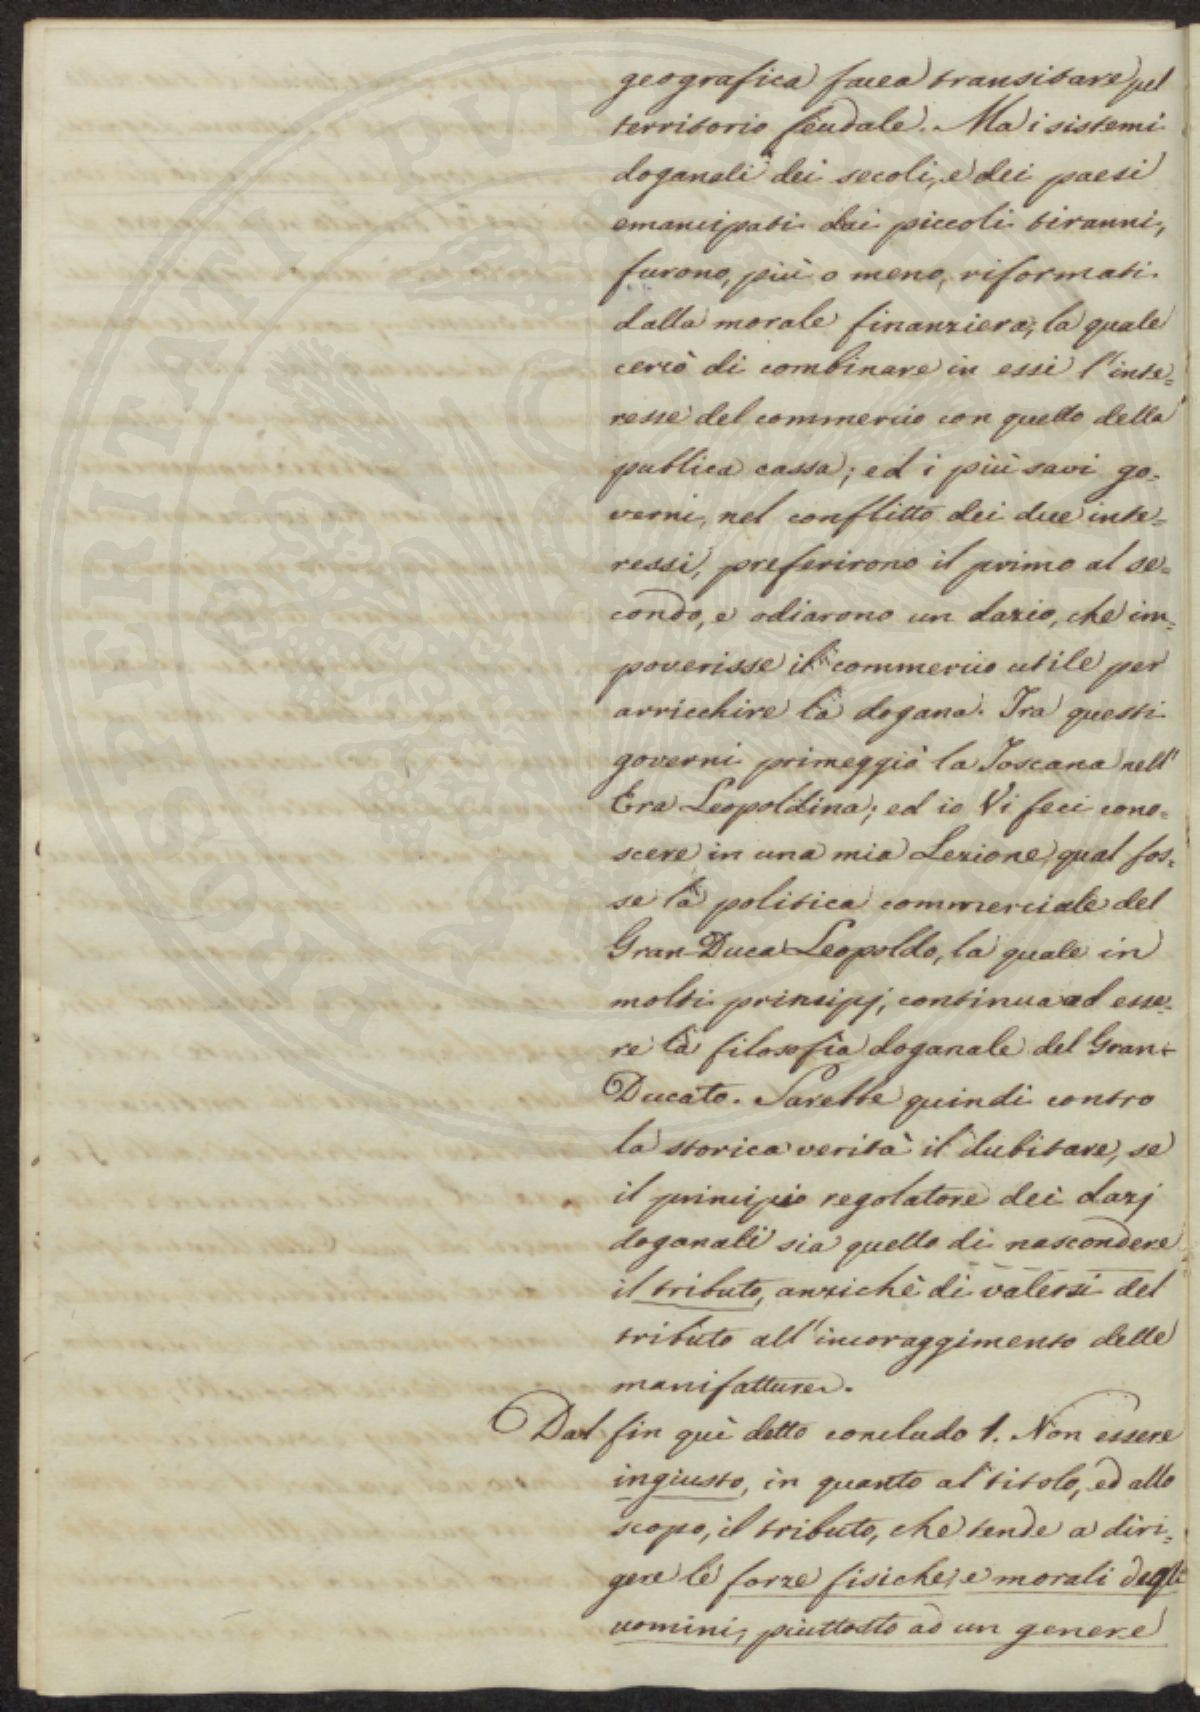 geografica facea transitare pel
territorio feudale. Ma i sistemi
doganali dei secoli, e dei paesi
emancipati dai piccoli tiranni,
furono, più o meno, riformati
dalla morale finanziera, la quale
cercò di combinare in essi l'inte=
resse del commercio con quello della
publica cassa; ed i più savi go=
verni, nel conflitto dei due inte=
ressi, preferirono il primo al se=
condo, e odiarono un dazio, che im=
poverisse il commercio utile per
arricchire la dogana. Tra questi
governi primeggiò la Toscana nell'
Era Leopoldina; ed io Vi feci cono=
scere in una mia Lezione, qual fos=
se la politica commerciale del
Gran-Duca Leopoldo, la quale in
molti principj, continua ad esse=
re la filosofia doganale del Gran-
Ducato. Sarebbe quindi contro
la storica verità il dubitare, se
il principio regolatore dei dazj
doganali sia quello di nascondere
il tributo, anzichè di valersi del
tributo all'incoraggimento delle
manifatture.
Dal fin quì detto concludo 1. Non essere
ingiusto, in quanto al titolo, ed allo
scopo, il tributo, che tende a diri=
gere le forze fisiche, e morali degli
uomini, piuttosto ad un genere
PROSPERITATI PVBLICAE